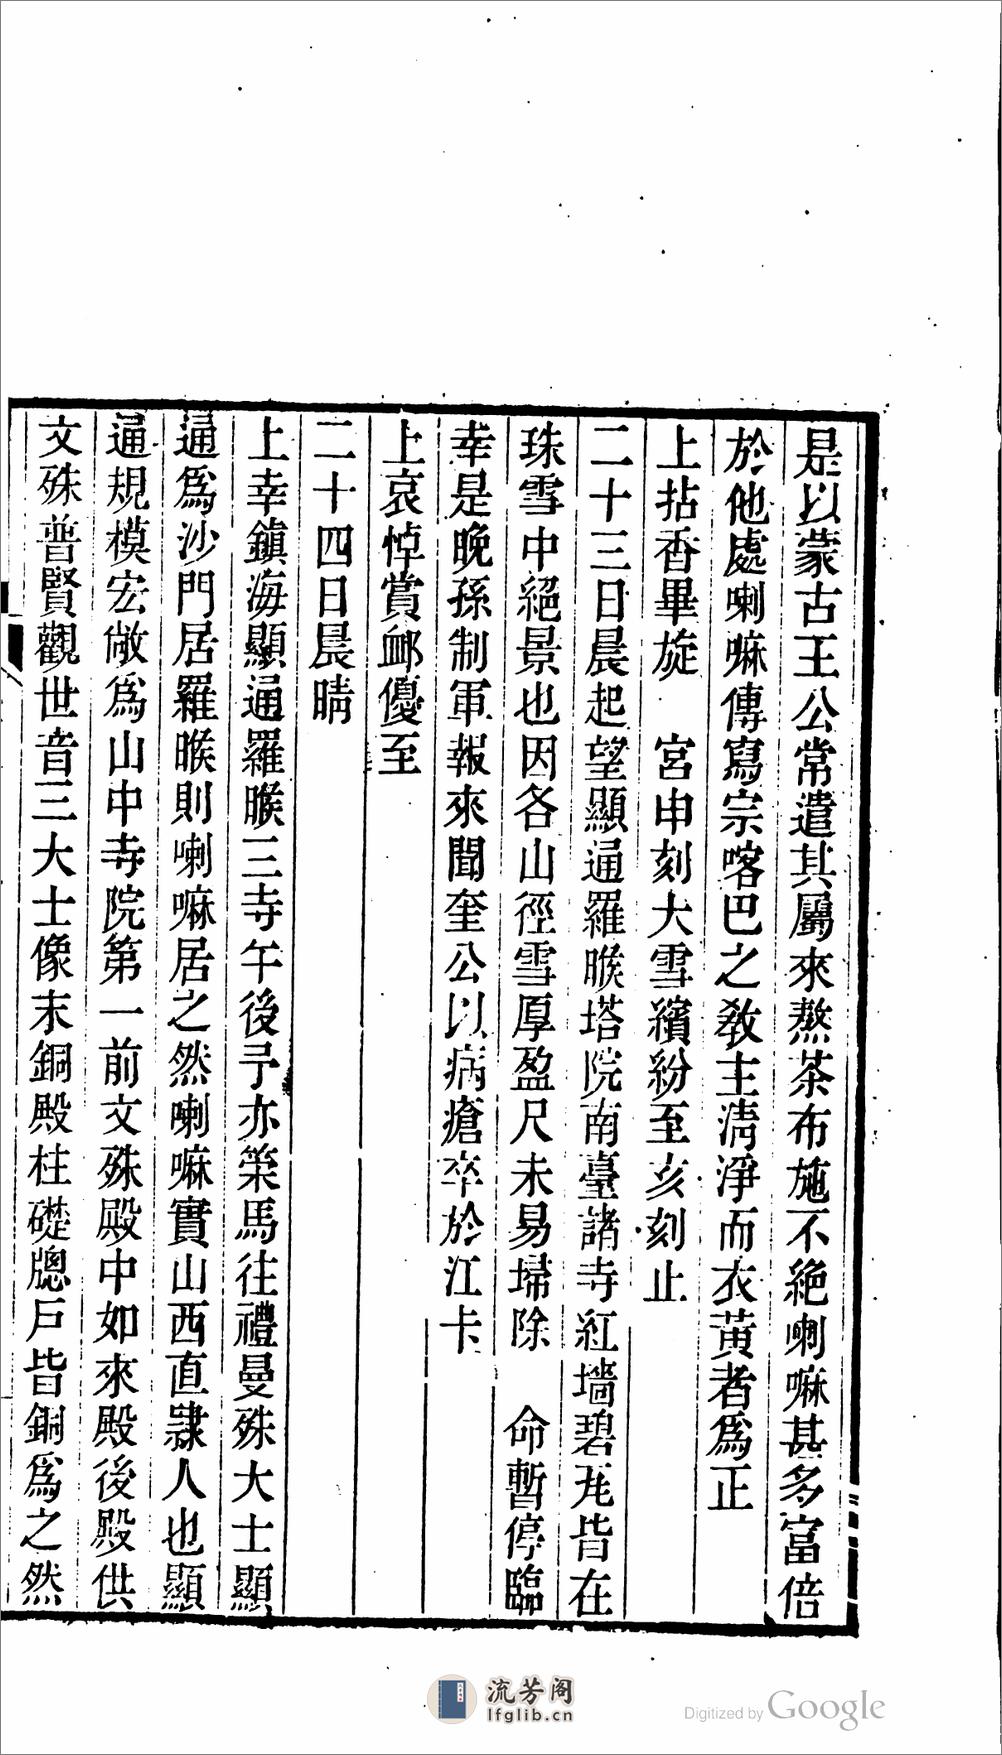 是以蒙古王公常遣其屬來熬茶布施不絕喇嘛甚多富倍
於他處喇嘛傳寫宗喀巴之教主清淨而衣黃者爲正
上拈香畢旋　宮申刻大雪繽紛至亥刻止
二十三日晨起望顯通羅睺塔院南臺諸寺紅墻碧瓦皆在
珠雪中絕景也因各山徑雪厚盈尺未易埽除　命暫停臨
幸是晚孫制軍報來聞奎公以病瘡卒於江卡
上哀悼賞卹優至
二十四日晨晴
上幸鎮海顯通羅睺三寺午後予亦策馬往禮曼殊大士顯
通爲沙門居羅睺則喇嘛居之然喇嘛實山西直隸人也顯
通規模宏敞爲山中寺院第一前文殊殿中如來殿後殿供
文殊普賢觀世音三大士像末銅殿柱礎牕戶皆銅爲之然
流芳阁
lfglib.cn
Digitized by Google